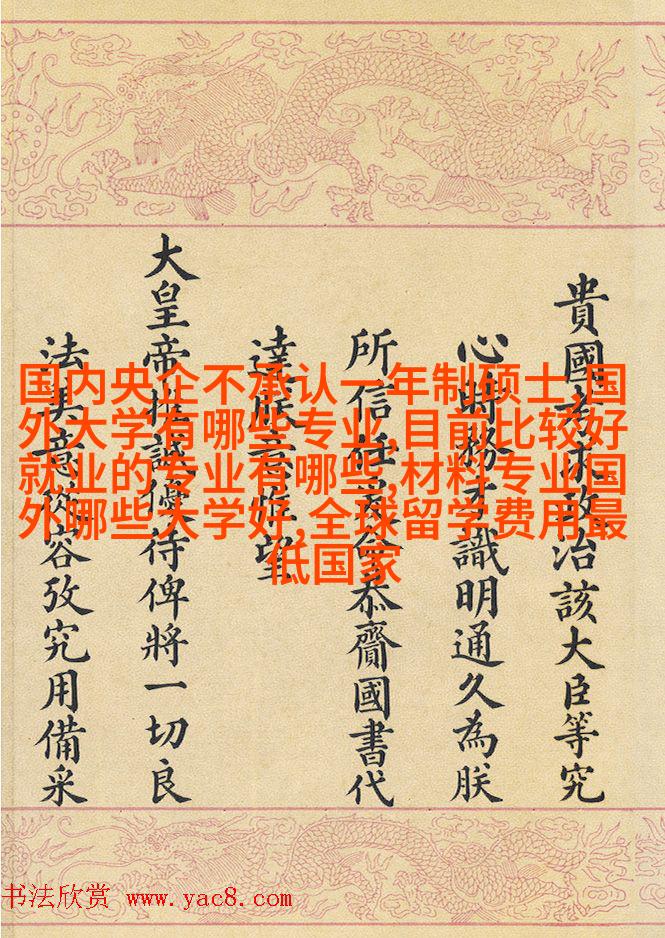 貴國考求政治該大臣等究
心時務才識明通久為朕
所信任爰命恭齎國書代
達朕意惟望
大皇帝推誠優待俾將一切良
法美意從容攷究用備采
国内央企不承认一年制硕士,国
外大学有哪些专业,目前比较好
就业的专业有哪些,材料专业国
外哪些大学好,全球留学费用最
低国家
书法欣赏 www.yac8.com